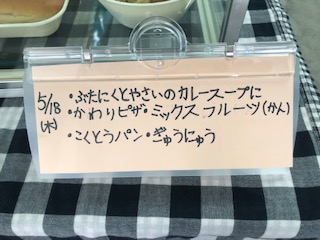 5/18 ・ぶたにくとやさいのカレースープに
(木) ・かわりピザ・ミックスフルーツ(かん)
・こくとうパン・ぎゅうにゅう